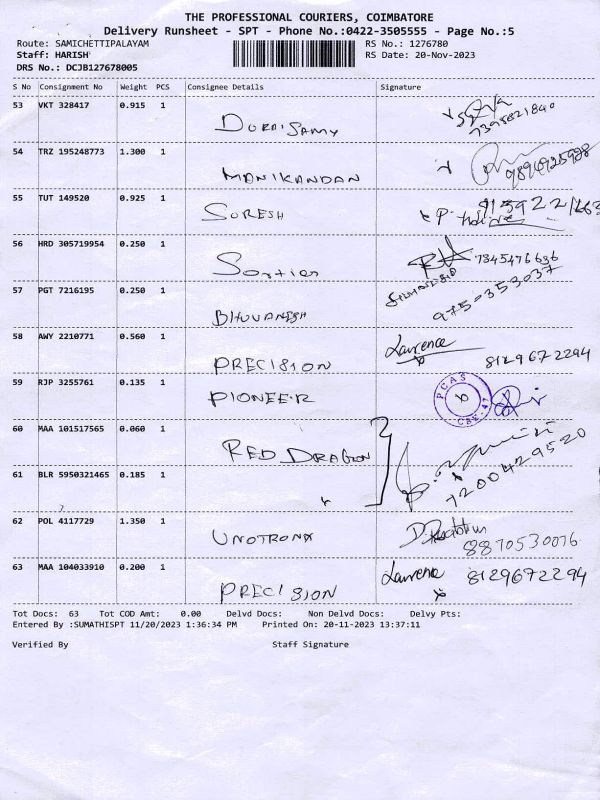 THE PROFESSIONAL COURIERS, COIMBATORE
Delivery Runsheet - SPT - Phone No.:0422-3505555 - Page No.:5
Route: SAMICHETTIPALAYAM RS No.: 1276780
Staff: HARISH RS Date: 20-Nov-2023
DRS No.: DCJB127678005
S No Consignment No Weight PCS Consignee Details Signature
53 VKT 328417 0.915 1
DORAISAMY 7395821840
54 TRZ 195248773 1.300 1
MANIKANDAN
55 TUT 149520 0.925 1
SURESH
56 HRD 305719954 0.250 1
7345476636
57 PGT 7216195 0.250 1 9750353037
BHUVANESH
58 AWY 2210771 0.560 1 Lawrence
PRECISION 8129672294
59 RJP 3255761 0.135 1
PIONEER PCAS CBE-47
60 MAA 101517565 0.060 1
RED DRAGON
61 BLR 5950321465 0.185 1 7200429520
62 POL 4117729 1.350 1
UNOTRONX 8870530076
63 MAA 104033910 0.200 1 Lawrence 8129672294
PRECISION
Tot Docs: 63 Tot COD Amt: 0.00 Delvd Docs: Non Delvd Docs: Delvy Pts:
Entered By :SUMATHISPT 11/20/2023 1:36:34 PM Printed On: 20-11-2023 13:37:11
Verified By Staff Signature